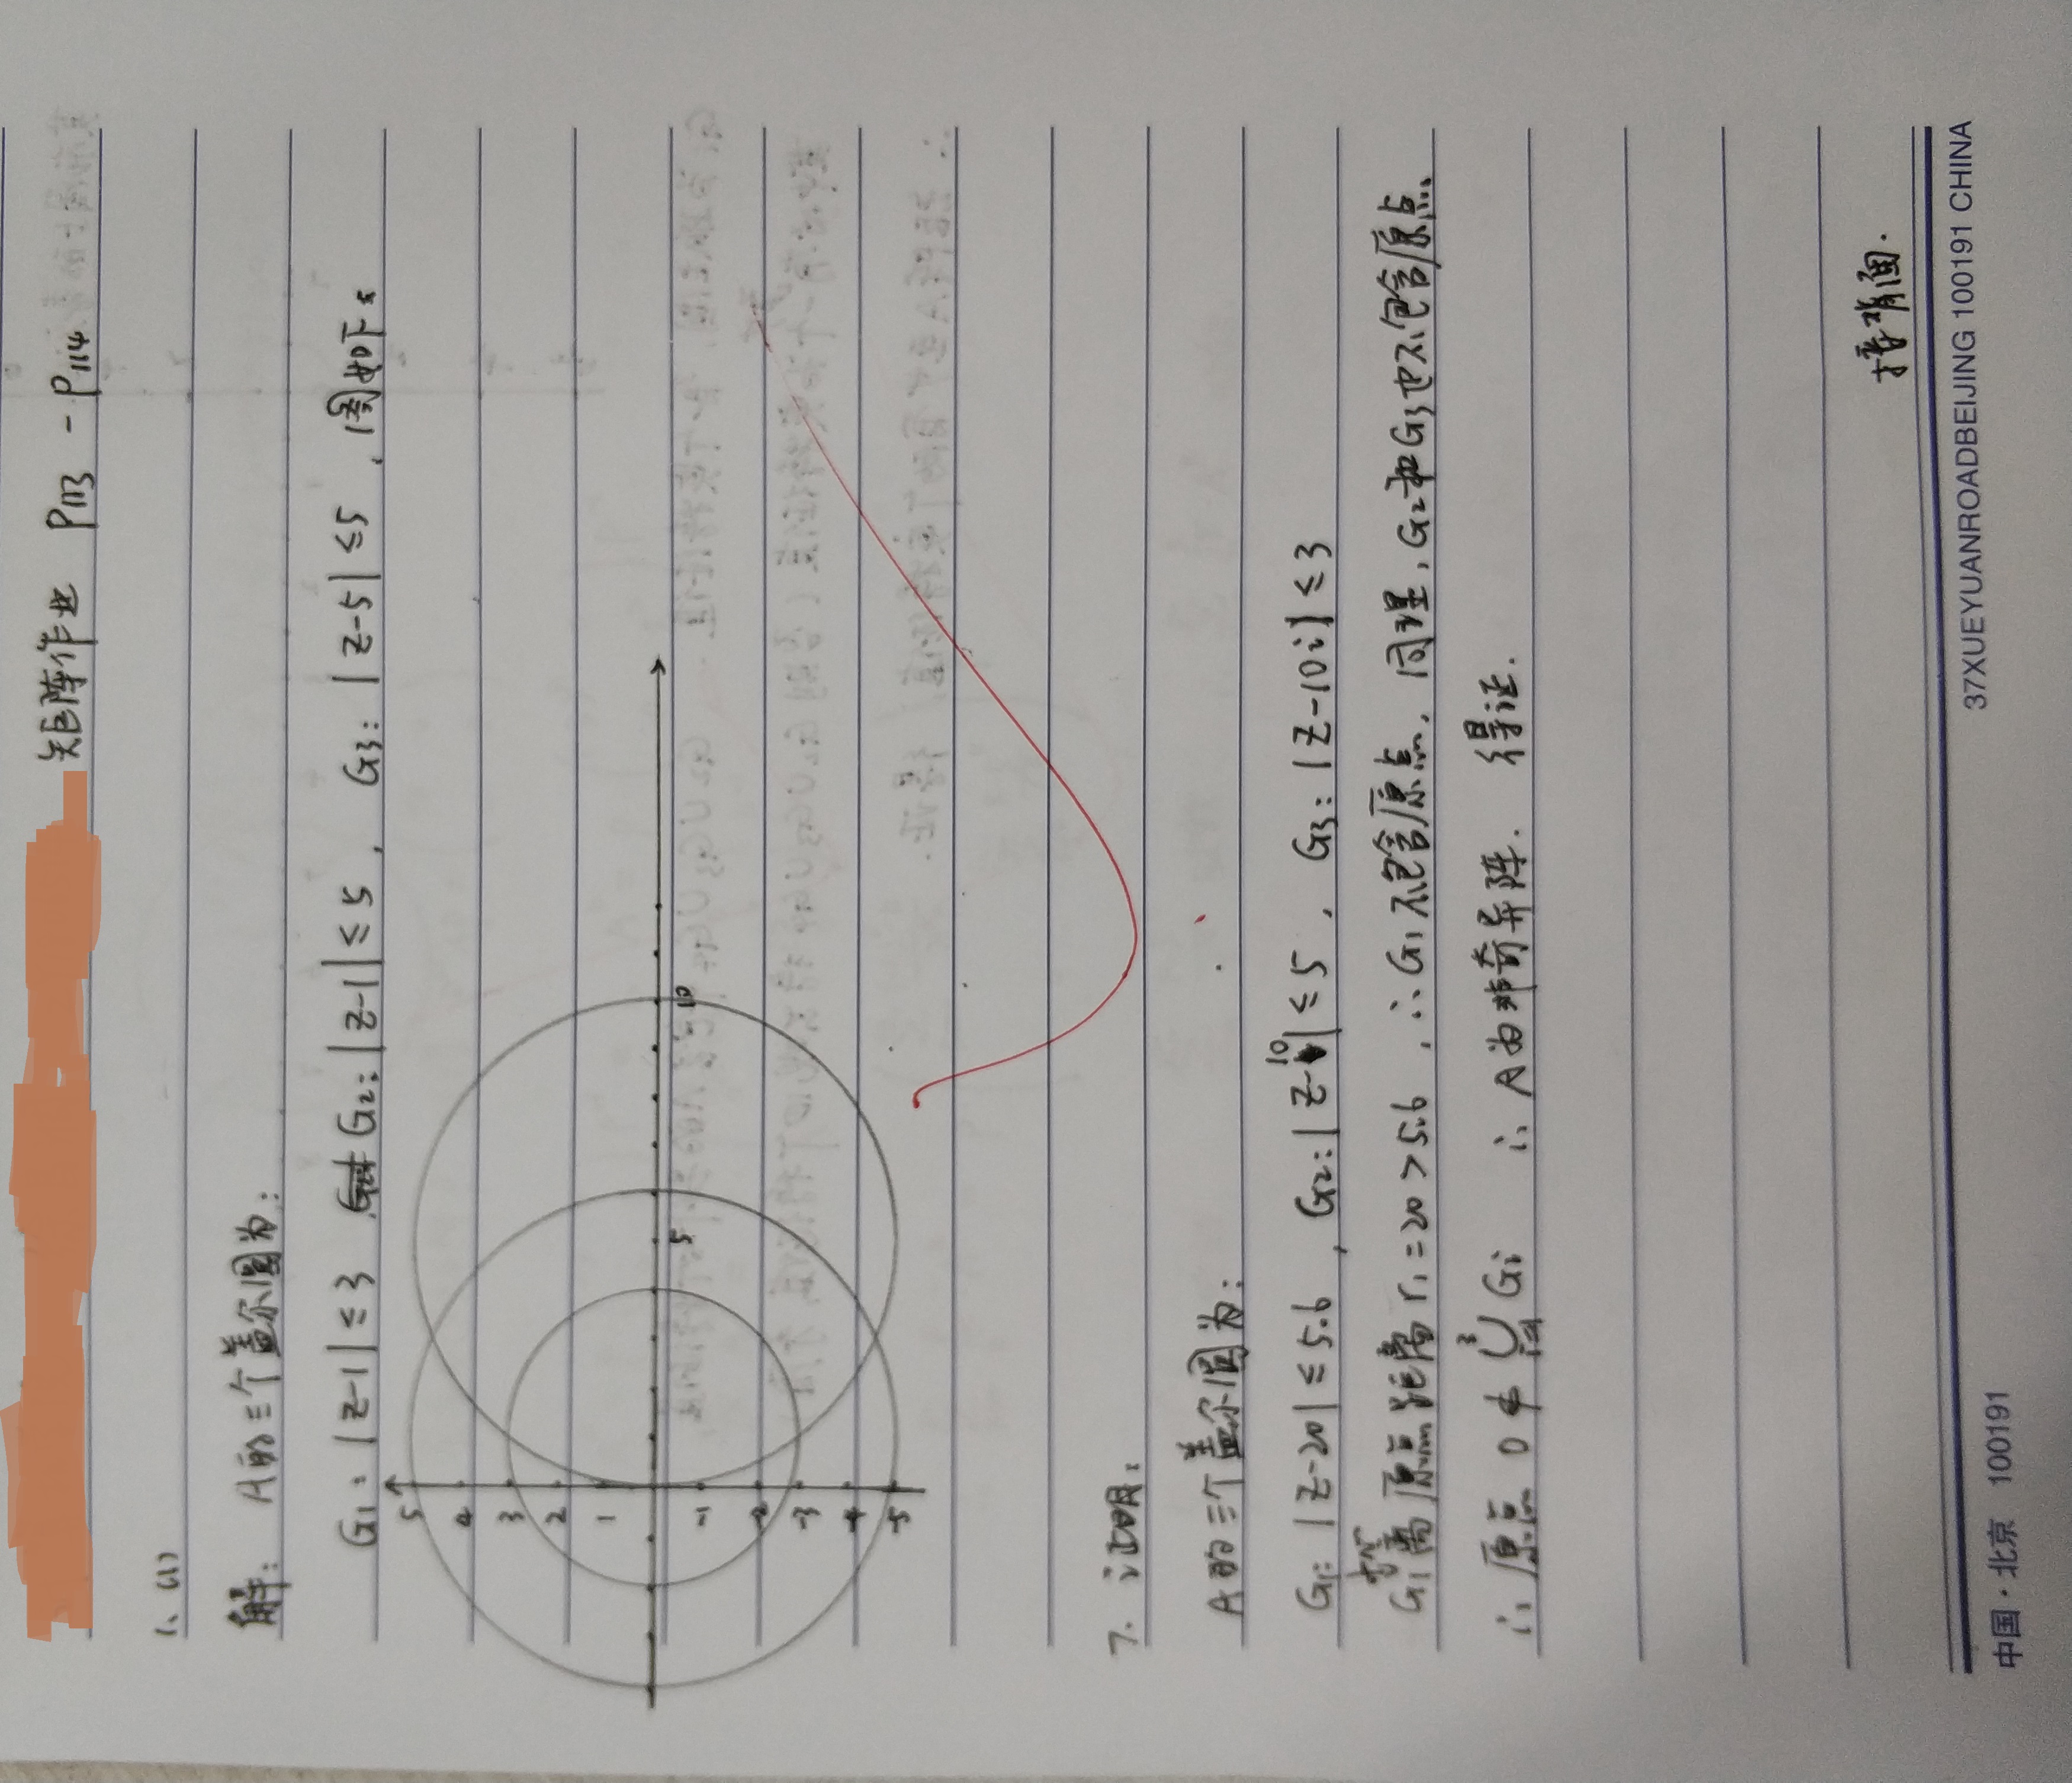 矩阵作业 P113 - P114
1、(1)
解: A的三个盖尔圆为:
G1: |z-1| ≤ 3 G2: |z-1| ≤ 5 , G3: |z-5| ≤ 5 , 图如下:
5
4
3
2
1
-1
-2
-3
-4
-5
5
10
7. 证明:
A的三个盖尔圆为:
G1: |z-20| ≤ 5.6 , G2: |z-10| ≤ 5 , G3: |z-10i| ≤ 3
G1离原点距离 r1=20 > 5.6 , ∴ G1不包含原点, 同理, G2和G3也不包含原点.
∴ 原点 0 ∉ ⋃³ᵢ₌₁ Gi ∴ A为非奇异阵. 得证.
接背面.
中国·北京 100191 37XUEYUANROADBEIJING 100191 CHINA